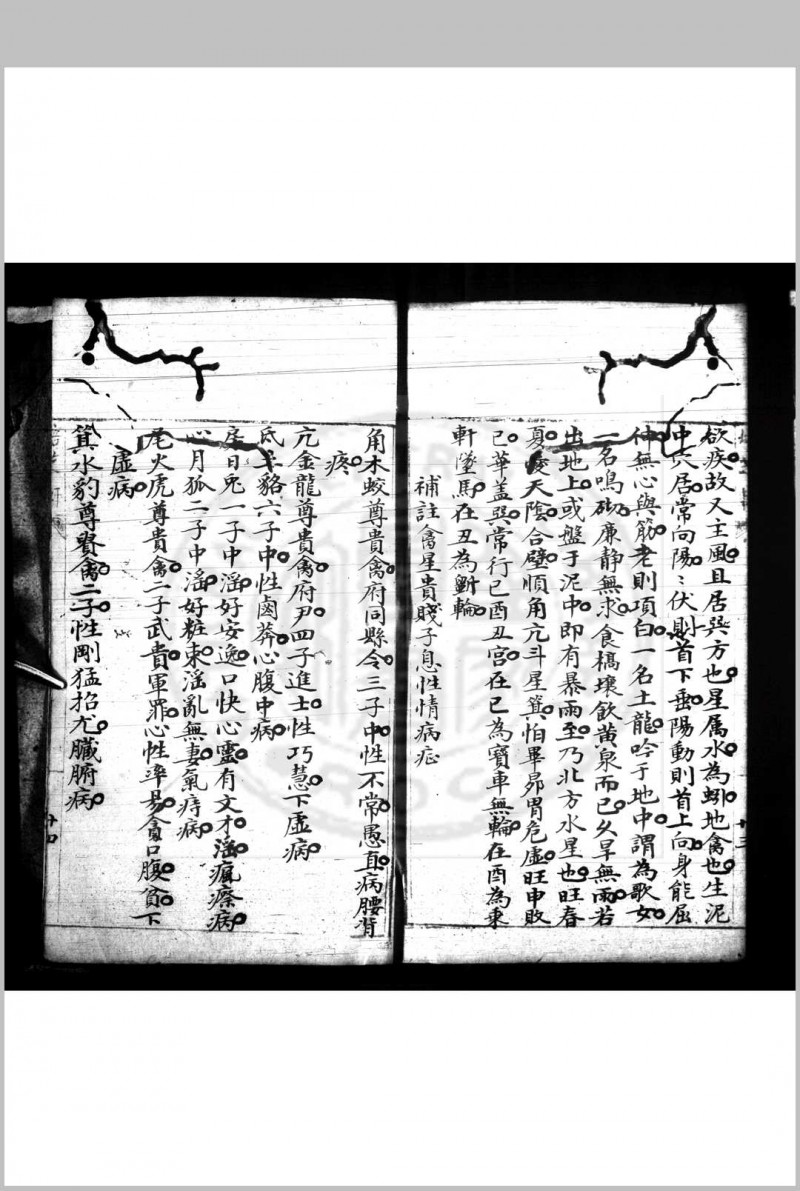 欲疾故又主風且居巽方也星属水為蚓地禽也生泥
中穴居常向陽〻伏則首下垂陽動則首上向身能屈
伸無心與筋老則項白一名土龍吟于地中謂為歌女
一名鳴砌廉静無求食槁壤飲黄泉而已久旱無雨若
出地上或盤于泥中即有暴雨至乃北方水星也旺春
夏凌天陰合壁順角亢斗星箕怕畢昴胃危虚旺申敗
己華盖巽常行巳酉丑宫在巳為寳車無輪在酉為乘
軒墜馬在丑為斵輪
補註禽星貴賤子息性情病症
角木蛟尊貴禽府同縣令三子中性不常愚直病腰背
疼
亢金龍尊貴禽府尹四子進士性巧慧下虚病
氐土貉六子中性鹵莽心腹中病
房日兎一子中滛好安逸口快心靈有文才滛瘋瘵病
心月狐二子中滛好粧束滛亂無妻氣痔病
尾火虎尊貴禽二子武貴軍罪心性率易貪口腹貧下
虚病
箕水豹尊貴禽二子性剛猛招尤臟腑病